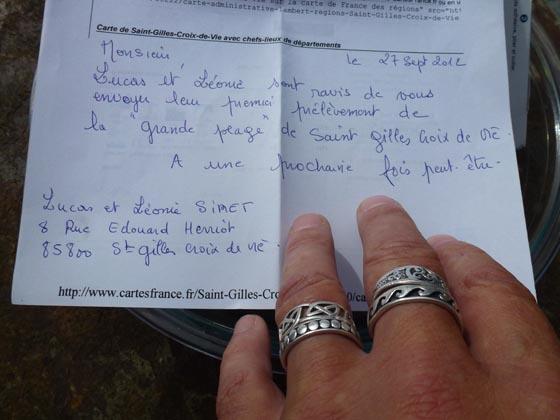 sur la carte de France des régions" src="ht
carte-administrative-lambert-regions-Saint-Gilles-Croix-de-Vie
Carte de Saint-Gilles-Croix-de-Vie avec chefs-lieux de départements
Monsieur,
le 27 Sept 2012
Lucas et Léonie sont ravis de vous
envoyer leur premier prélèvement de
la "grande plage" de Saint Gilles Croix de Vie.
A une prochaine fois peut-être.
Lucas et Léonie SIMET
8 Rue Edouard Herriot
85800 St gilles Croix de Vie.
http://www.cartesfrance.fr/Saint-Gilles-Cro